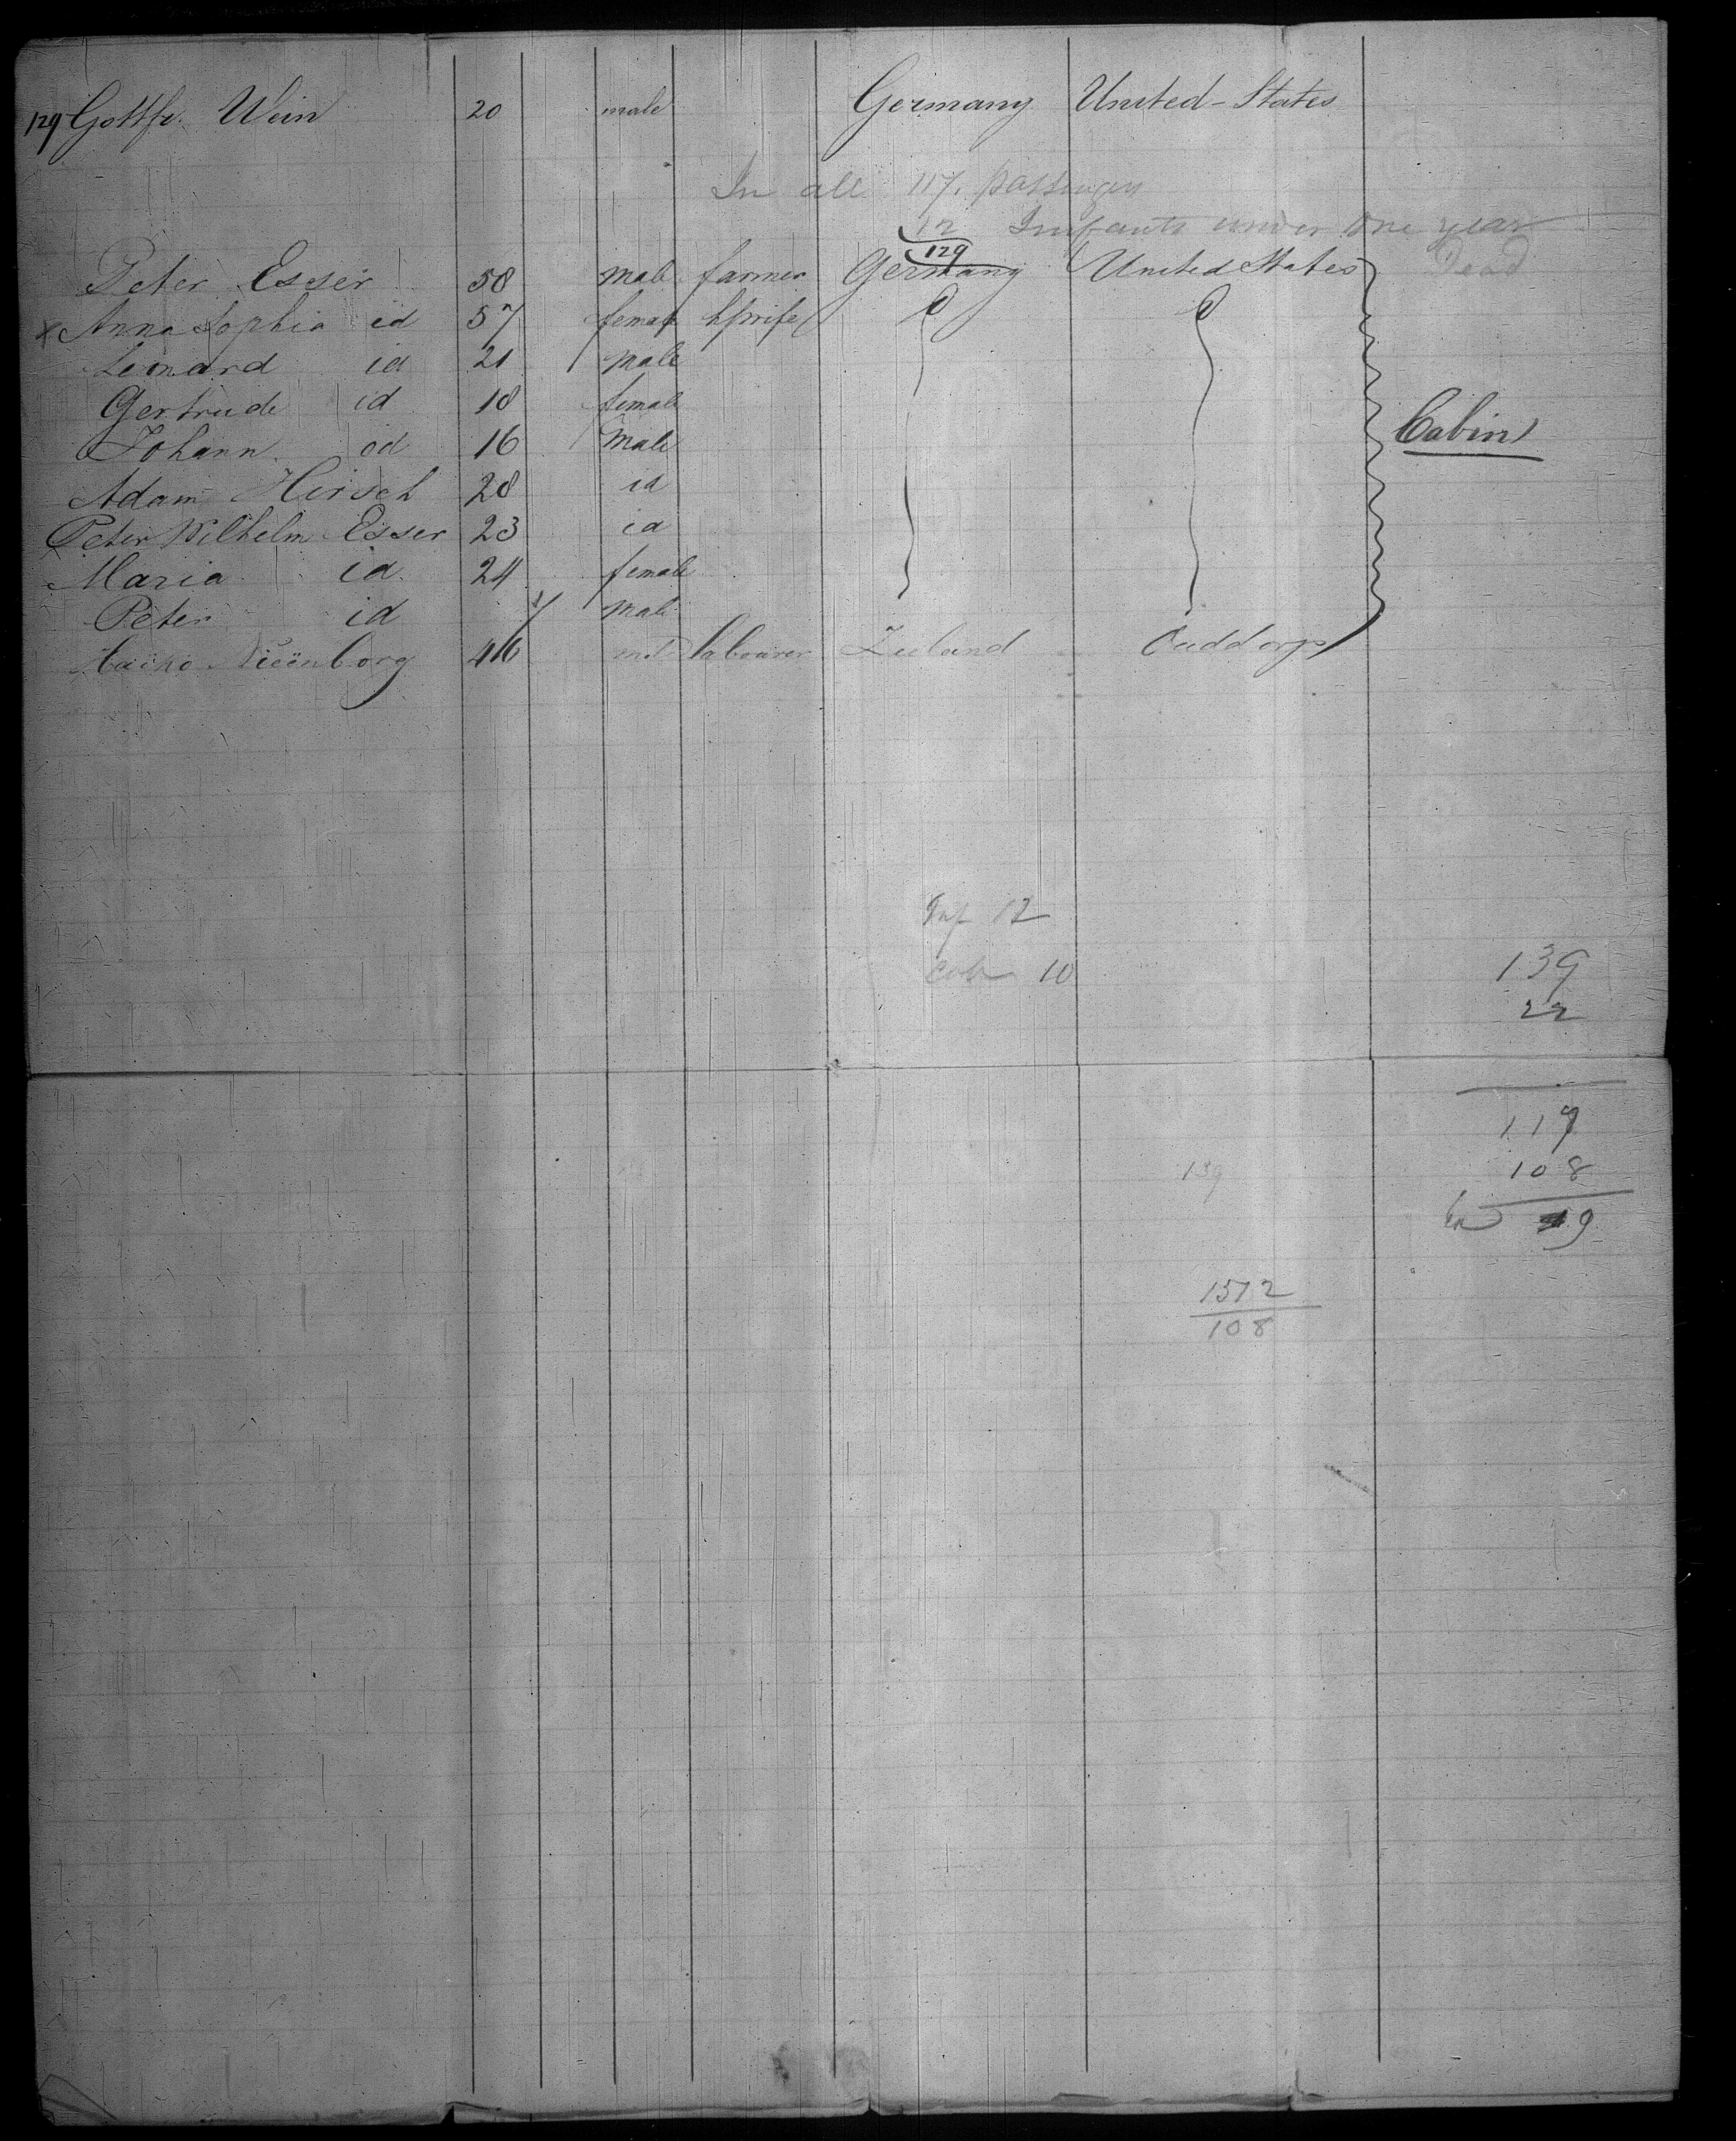 129 Gottfr. Wein 20 male Germany United-States
In all 117. passengers
12 Infants under one year
129
Peter Esser 58 male farmer Germany United States Dead
x Anna Sophia id 57 female hswife
Leonard id 21 male
Gertrude id 18 female
Johann id 16 male Cabin
Adam Hirsch 28 id
Peter Wilhelm Esser 23 id
Maria id 24 female
Peter id male
46 labourer Zeeland Ouddorp
Inf 12
Cab 10 139
22
117
139 108
9
1512
108